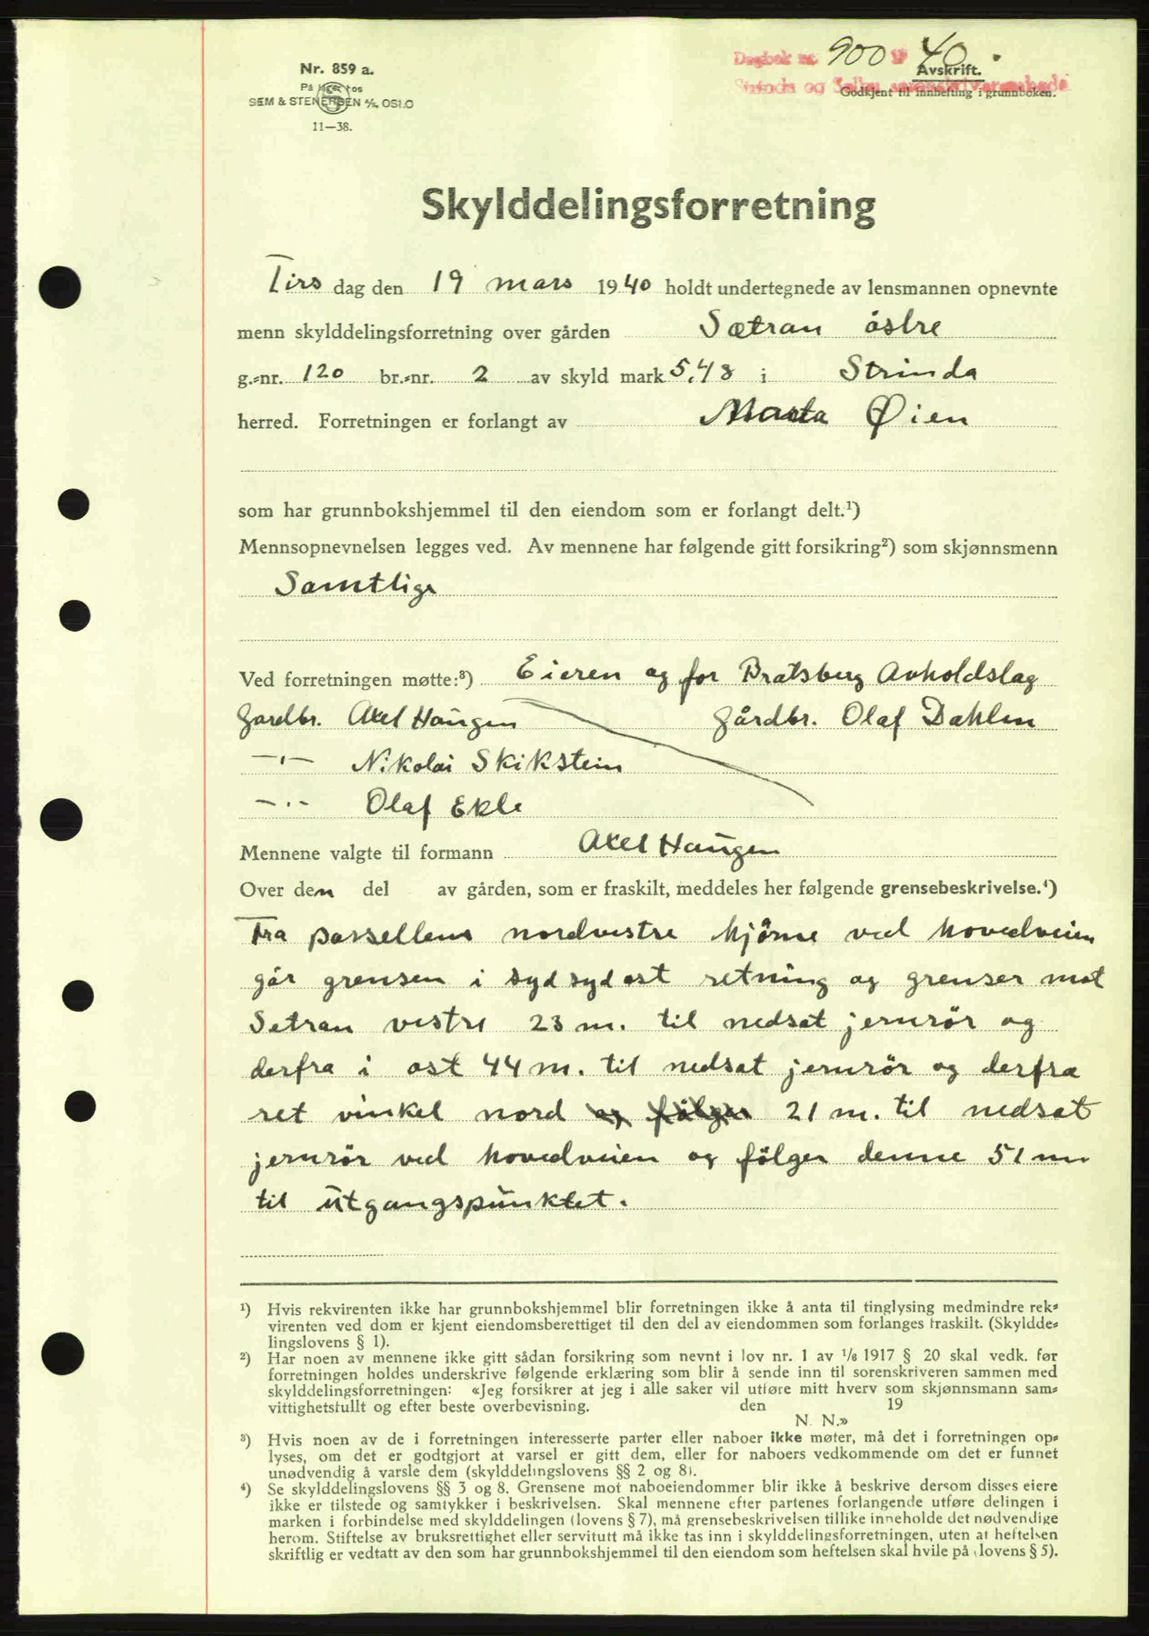 Nr. 859 a.
SEM & STENERSEN A/S, OSLO
11—38.
Dagbok nr. 900 19 40.
Avskrift.
Strinda og Selbu sorenskriverembede
Godkjent til innhefting i grunnboken.
Skylddelingsforretning
Tirs dag den 19 mars 1940 holdt undertegnede av lensmannen opnevnte
menn skylddelingsforretning over gården Sætran östre
g.-nr. 120 br.-nr. 2 av skyld mark 5,48 i Strinda
herred. Forretningen er forlangt av Marta Øien
som har grunnbokshjemmel til den eiendom som er forlangt delt.¹)
Mennsopnevnelsen legges ved. Av mennene har følgende gitt forsikring²) som skjønnsmenn
Samtlige
Ved forretningen møtte:³) Eieren og for Bratsberg Avholdslag
Gardbr. Axel Haugen gårdbr. Olaf Dahlen
—"— Nikolai Skikstein
—"— Olaf Ekle
Mennene valgte til formann Axel Haugen
Over den del av gården, som er fraskilt, meddeles her følgende grensebeskrivelse.⁴)
Fra parsellens nordvestre hjörne ved hovedveien
går grensen i sydsydost retning og grenser mot
Setran vestre 23 m. til nedsat jernrör og
derfra i ost 44 m. til nedsat jernrör og derfra
ret vinkel nord og fölger 21 m. til nedsat
jernrör ved hovedveien og fölger denne 51 m
til utgangspunktet.
¹) Hvis rekvirenten ikke har grunnbokshjemmel blir forretningen ikke å anta til tinglysing medmindre rek-
virenten ved dom er kjent eiendomsberettiget til den del av eiendommen som forlanges fraskilt. (Skyldde-
lingslovens § 1).
²) Har noen av mennene ikke gitt sådan forsikring som nevnt i lov nr. 1 av ¹/₆ 1917 § 20 skal vedk. før
forretningen holdes underskrive følgende erklæring som blir å sende inn til sorenskriveren sammen med
skylddelingsforretningen: «Jeg forsikrer at jeg i alle saker vil utføre mitt hverv som skjønnsmann sam-
vittighetsfullt og efter beste overbevisning. den 19
N. N.»
³) Hvis noen av de i forretningen interesserte parter eller naboer ikke møter, må det i forretningen op-
lyses, om det er godtgjort at varsel er gitt dem, eller for naboers vedkommende om det er funnet
unødvendig å varsle dem (skylddelingslovens §§ 2 og 8).
⁴) Se skylddelingslovens §§ 3 og 8. Grensene mot naboeiendommer blir ikke å beskrive dersom disses eiere
ikke er tilstede og samtykker i beskrivelsen. Skal mennene efter partenes forlangende utføre delingen i
marken i forbindelse med skylddelingen (lovens § 7), må grensebeskrivelsen tillike inneholde det nødvendige
herom. Stiftelse av bruksrettighet eller servitutt må ikke tas inn i skylddelingsforretningen, uten at heftelsen
skriftlig er vedtatt av den som har grunnbokshjemmel til den eiendom som heftelsen skal hvile på (lovens § 5).